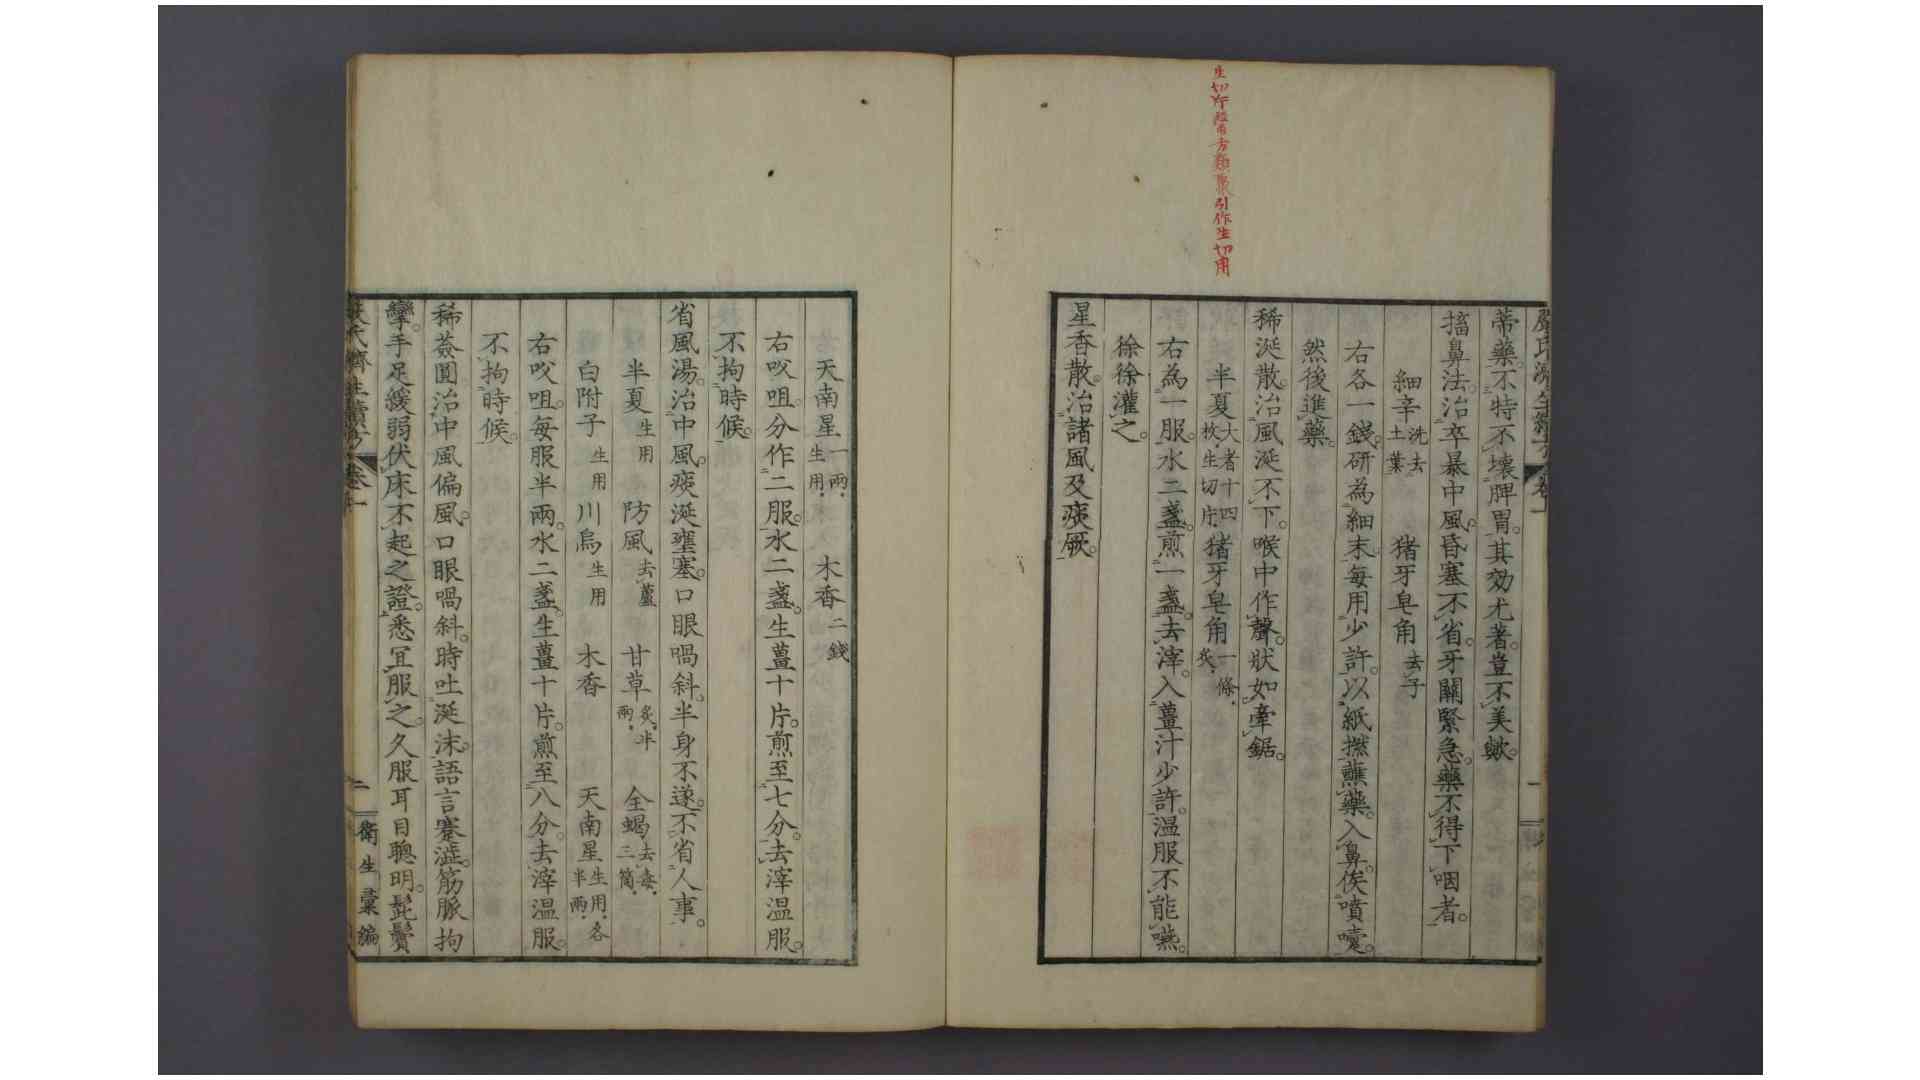 生切片醫方類聚引作生切用
蒂藥。不特不壞脾胃。其効尤著。豈不美歟。
搐鼻法。治卒暴中風。昏塞不省。牙關緊急。藥不得下咽者。
細辛洗去土葉 猪牙皂角去子
右各一錢。研為細末。每用少許。以紙撚蘸藥。入鼻。俟噴嚏。
然後進藥。
稀涎散。治風涎不下。喉中作聲。狀如牽鋸。
半夏大者十四枚。生切片。 猪牙皂角一條。炙。
右為一服。水二盞。煎一盞。去滓。入薑汁少許。溫服。不能嚥。
徐徐灌之。
星香散。治諸風及痰厥。
天南星一兩。生用。 木香二錢
右㕮咀。分作二服。水二盞。生薑十片。煎至七分。去滓溫服。
不拘時候。
省風湯。治中風。痰涎壅塞。口眼喎斜。半身不遂。不省人事。
半夏生用 防風去蘆 甘草炙。半兩。 全蝎去毒。三箇。
白附子生用 川烏生用 木香 天南星生用。各半兩。
右㕮咀。每服半兩。水二盞。生薑十片。煎至八分。去滓溫服。
不拘時候。
稀薟圓。治中風偏風。口眼喎斜。時吐涎沫。語言蹇澁。筋脈拘
攣。手足緩弱。伏床不起之證。悉冝服之。久服耳目聰明。髭鬢
嚴氏濟生續方 卷一 二 衛生彙編